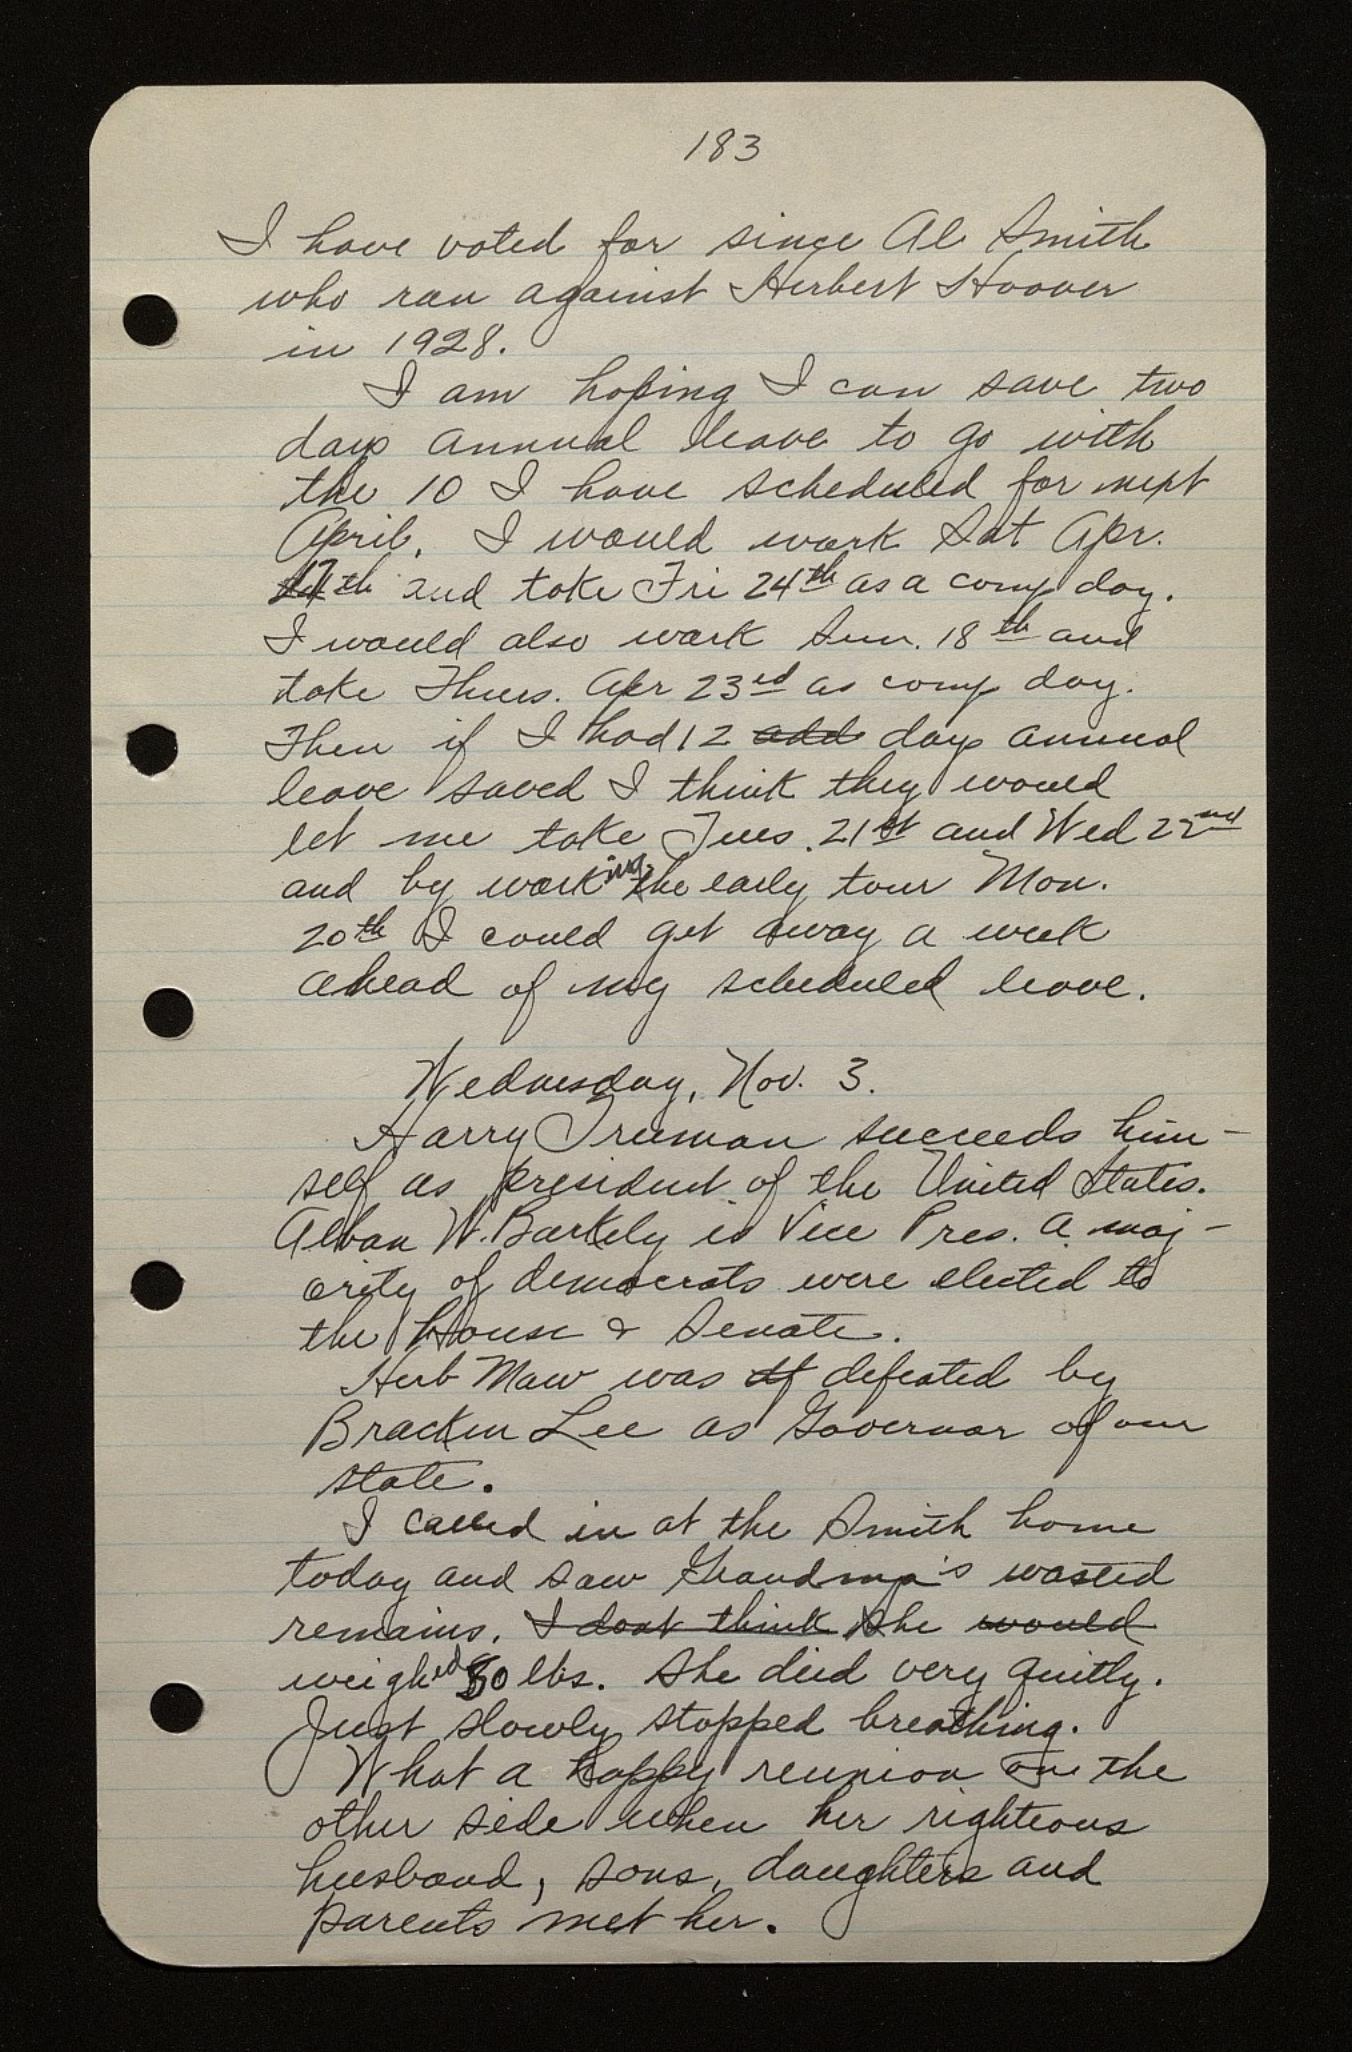 183
I have voted for since Al Smith
who ran against Herbert Hoover
in 1928.
I am hoping I can save two
days annual leave to go with
the 10 I have scheduled for next
April. I would work Sat Apr.
17th and take Fri 24th as a comp day.
I would also work Sun. 18th and
take Thurs. Apr 23rd as comp day.
Then if I had 12 add days annual
leave saved I think they would
let me take Tues. 21st and Wed 22nd
and by working the early tour Mon.
20th I could get away a week
ahead of my scheduled leave.
Wednesday, Nov. 3.
Harry Truman succeeds him-
self as president of the United States.
Alban W. Barkely is Vice Pres. A maj-
ority of democrats were elected to
the House & Senate.
Herb Maw was df defeated by
Bracken Lee as Governor of our
state.
I called in at the Smith home
today and saw Grandma's wasted
remains. I dont think She would
weighed 80 lbs. She died very quitly.
Just slowly stopped breathing.
What a happy reunion on the
other side when her righteous
husband, sons, daughters and
parents met her.